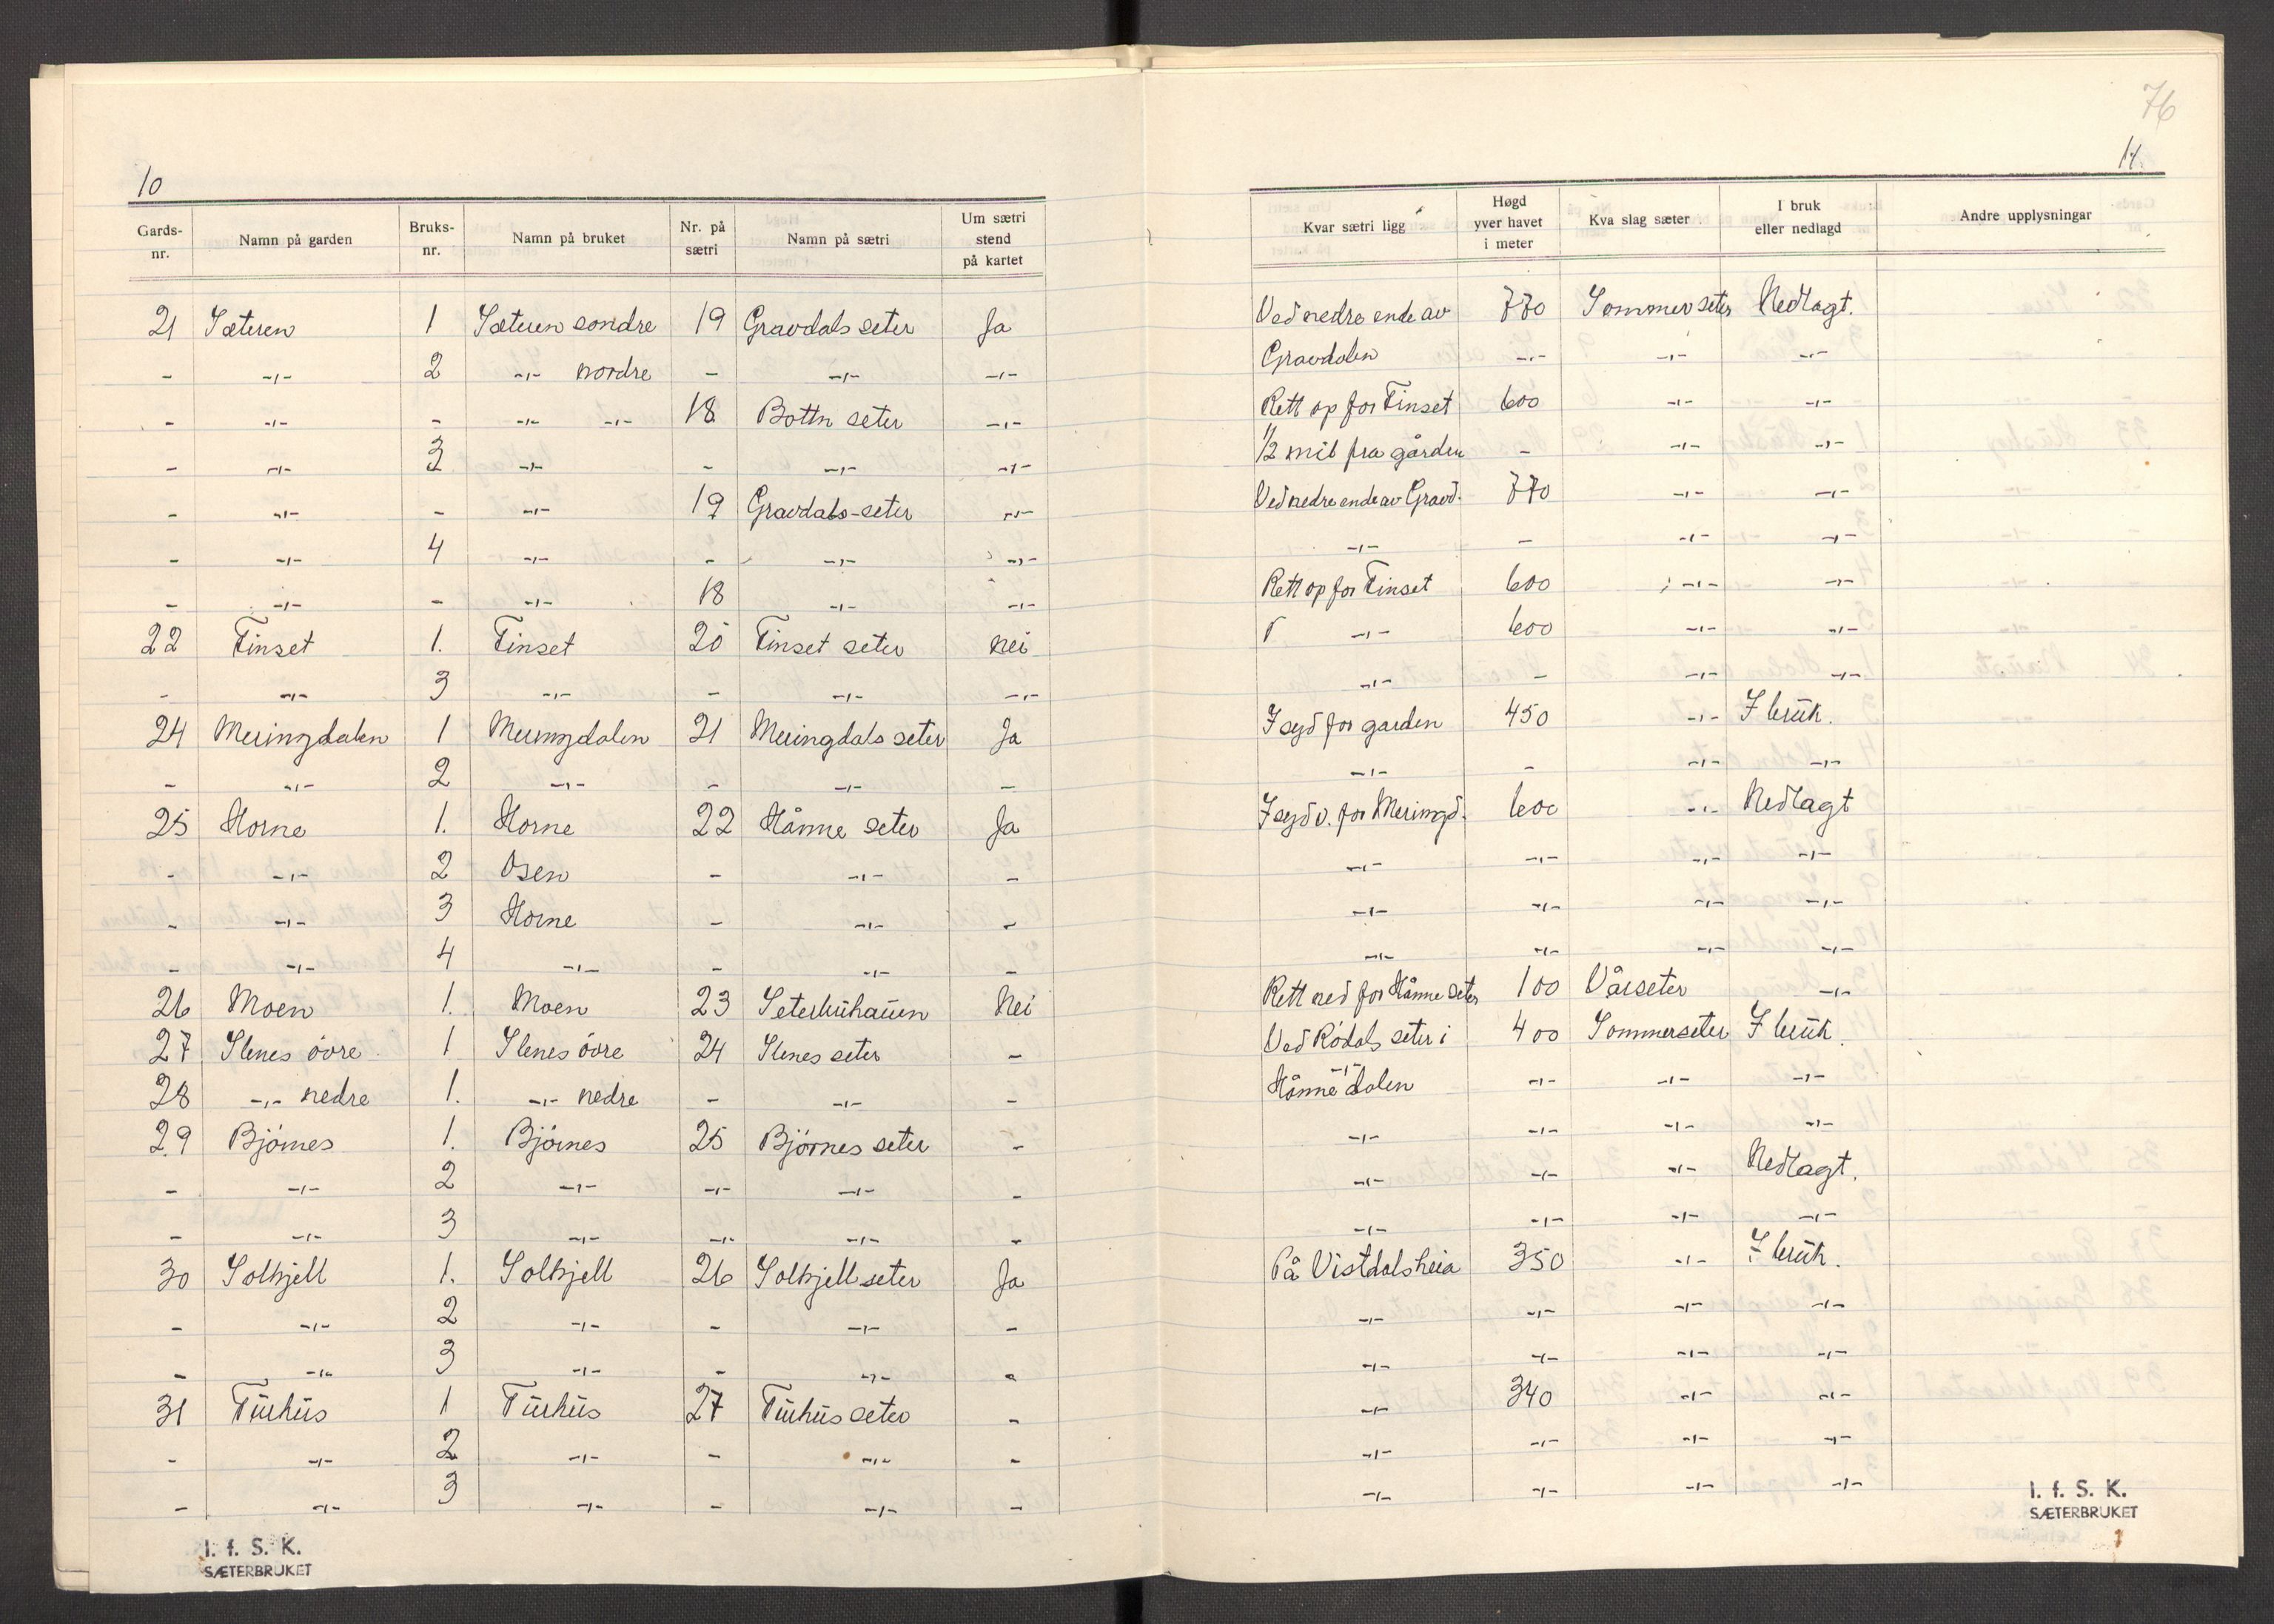 76
10
11.
Gards-nr. | Namn på garden | Bruks-nr. | Namn på bruket | Nr. på sætri | Namn på sætri | Um sætri stend på kartet | Kvar sætri ligg | Høgd yver havet i meter | Kva slag sæter | I bruk eller nedlagd | Andre upplysningar
21 | Sæteren | 1 | Sæteren søndre | 19 | Gravdals seter | Ja | Ved nedre ende av | 770 | Sommerseter | Nedlagt.
- | -"- | 2 | -"- nordre | - | -"- | -"- | Gravdalen | -"- | -"- | -"-
- | -"- | - | -"- -"- | 18 | Bottn seter | -"- | Rett op for Finset | 600 | -"- | -"-
- | -"- | 3 | -"- | - | -"- | -"- | 1/2 mil fra gården | - | -"- | -"-
- | -"- | - | -"- | 19 | Gravdals-seter | -"- | Ved nedre ende av Gravd. | 770 | -"- | -"-
- | -"- | 4 | -"- | - | -"- | -"- | -"- | - | -"- | -"-
- | -"- | - | -"- | 18 | -"- | -"- | Rett op for Finset | 600 | -"- | -"-
22 | Finset | 1. | Finset | 20 | Finset seter | nei | -"- | 600 | -"- | -"-
- | -"- | 3 | -"- | - | -"- | -"- | -"- | - | -"- | -"-
24 | Meringdalen | 1 | Meringdalen | 21 | Meringdals seter | Ja | I syd for garden | 450 | -"- | I bruk.
- | -"- | 2 | -"- | - | -"- | - | -"- | - | -"- | -"-
25 | Horne | 1. | Horne | 22 | Hånne seter | Ja | I syd v. for Meringd. | 600 | -"- | Nedlagt
- | -"- | 2 | Osen | - | -"- | - | -"- | -"- | -"- | -"-
- | -"- | 3 | Horne | - | -"- | - | -"- | -"- | -"- | -"-
- | -"- | 4 | -"- | - | -"- | - | -"- | -"- | -"- | -"-
26 | Moen | 1. | Moen | 23 | Seterbuhauen | Nei | Rett ned for Hånne seter | 100 | Vårseter | -"-
27 | Slenes övre | 1 | Slenes övre | 24 | Slenes seter | - | Ved Rödals seter i | 400 | Sommerseter | I bruk.
28 | -"- nedre | 1. | -"- nedre | - | -"- | - | Hånnedalen -"- | -"- | -"- | -"-
29 | Björnes | 1. | Björnes | 25 | Björnes seter | - | -"- | -"- | -"- | -"-
- | -"- | 2 | -"- | -"- | -"- | - | -"- | -"- | -"- | Nedlagt.
- | -"- | 3 | -"- | -"- | -"- | - | -"- | -"- | -"- | -"-
30 | Solkjell | 1. | Solkjell | 26 | Solkjell seter | Ja | På Vistdalsheia | 350 | -"- | I bruk.
- | -"- | 2 | -"- | - | -"- | - | -"- | -"- | -"- | -"-
- | -"- | 3 | -"- | - | -"- | - | -"- | -"- | -"- | -"-
31 | Turhus | 1 | Turhus | 27 | Turhus seter | - | -"- | 340 | -"- | -"-
- | -"- | 2 | -"- | - | -"- | - | -"- | -"- | -"- | -"-
- | -"- | 3 | -"- | - | -"- | - | -"- | -"- | -"- | -"-
I. f. S. K.
SÆTERBRUKET
I. f. S. K.
SÆTERBRUKET